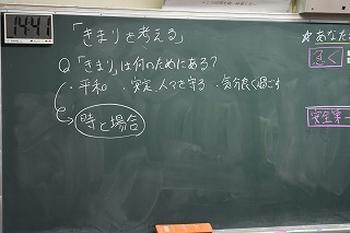 14:41
「きまりを考える」
Q「きまり」は何のためにある?
・平和 ・安定、人々を守る ・気分良く過ごす
時と場合
☆あなた
急ぐ
安全第一